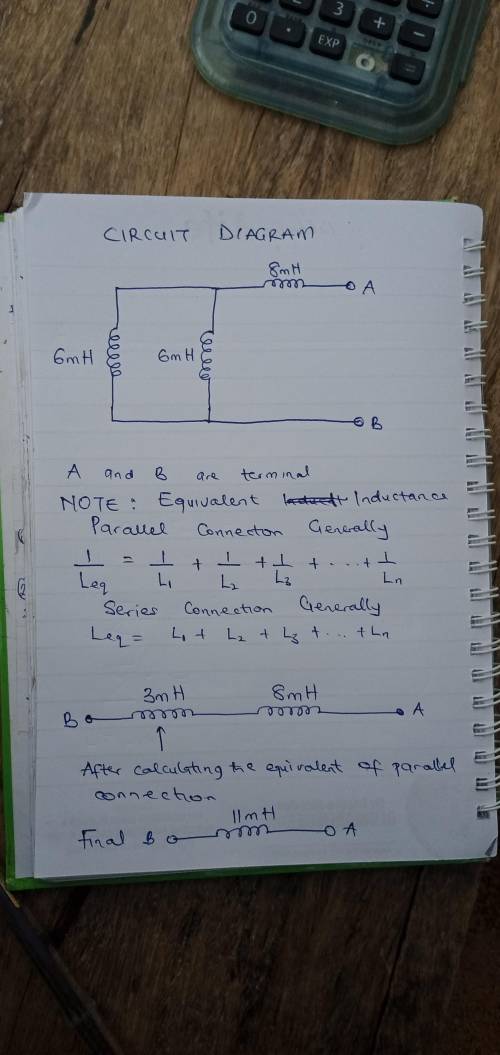 0
.
EXP
3
+
-
÷
=
CIRCUIT DIAGRAM
8mH
A
6mH
6mH
B
A and B are terminal
NOTE: Equivalent Inductance
Parallel Connecton Generally
1/Leq = 1/L1 + 1/L2 + 1/L3 + ... + 1/Ln
Series Connection Generally
Leq = L1 + L2 + L3 + ... + Ln
3mH 8mH
B A
After calculating the equivalent of parallel
connection
11mH
Final B A